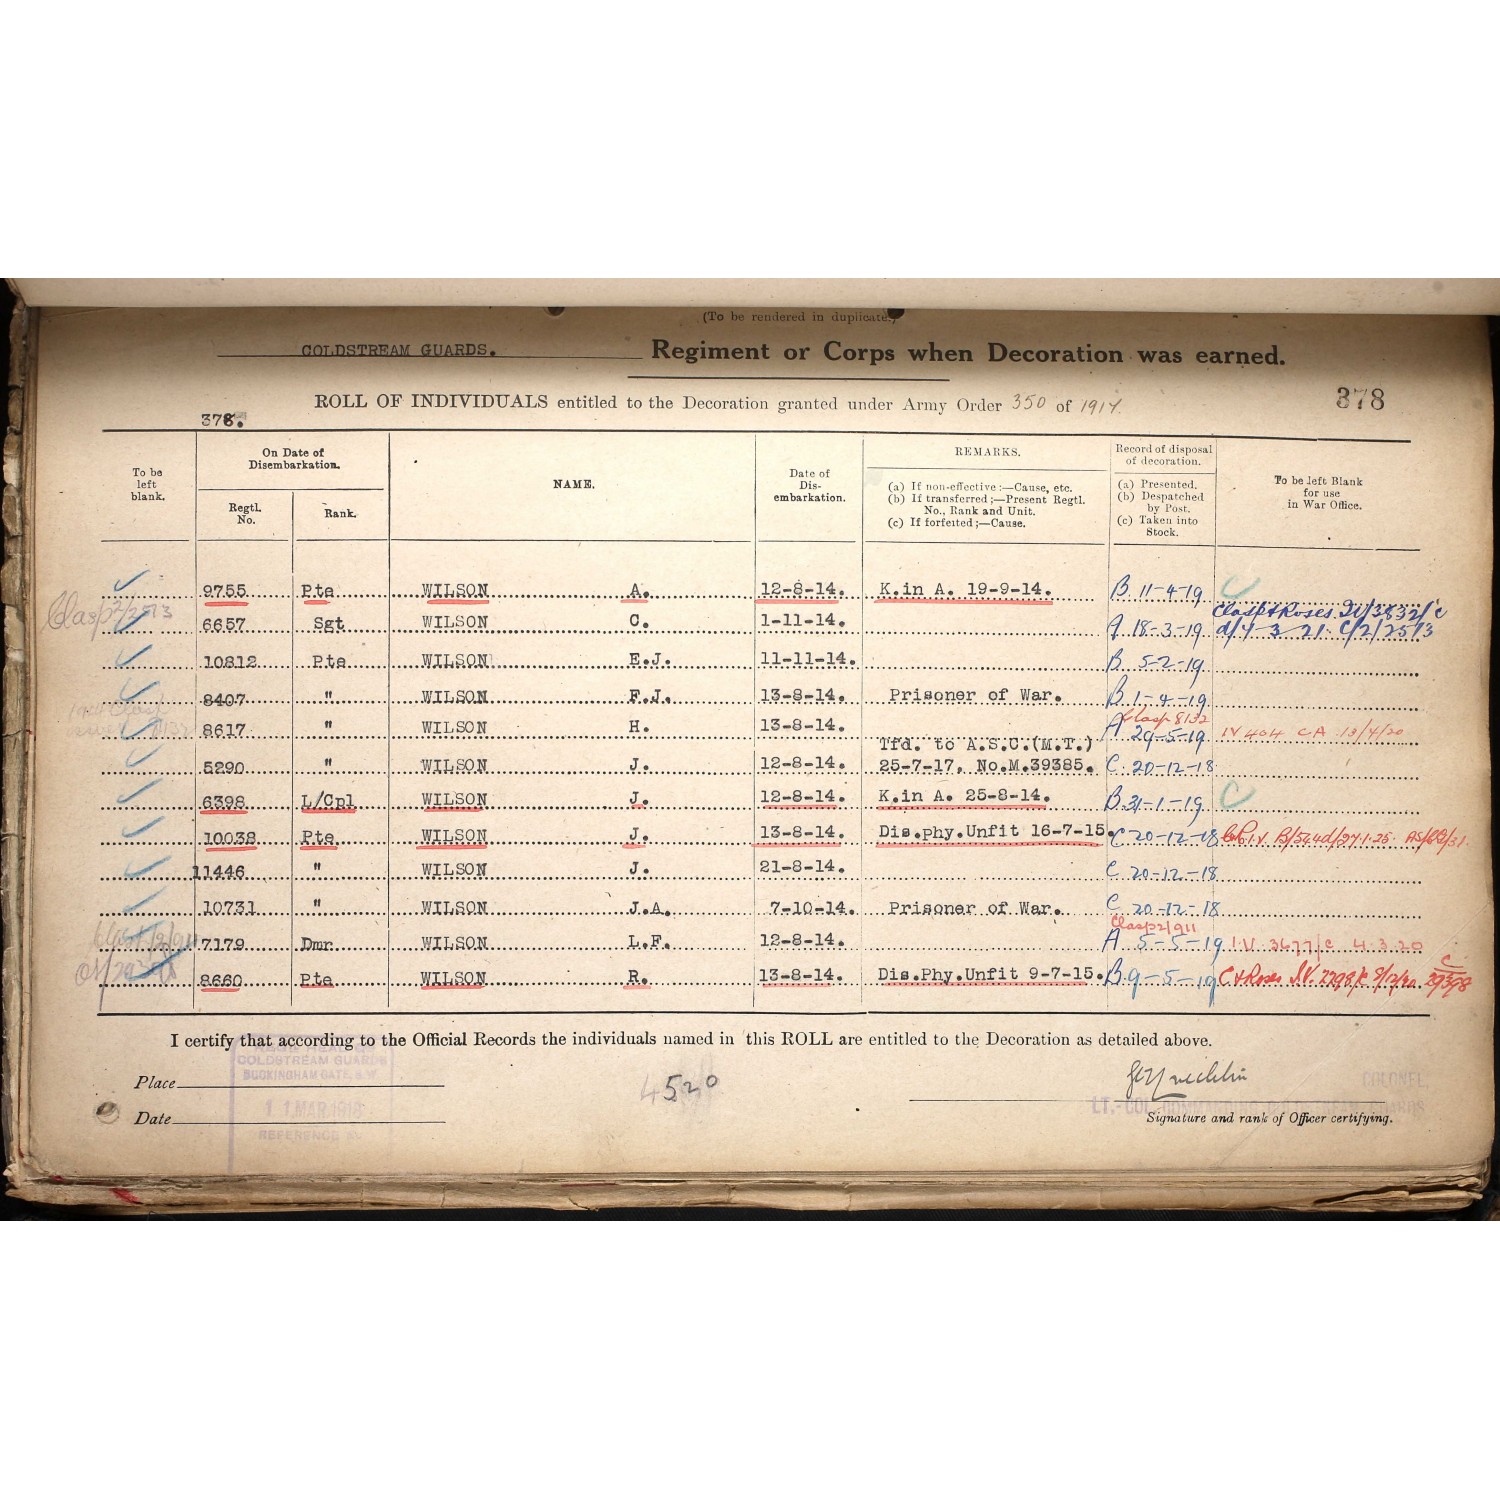 (To be rendered in duplicate.)
COLDSTREAM GUARDS. Regiment or Corps when Decoration was earned.
ROLL OF INDIVIDUALS entitled to the Decoration granted under Army Order 350 of 1917.
378
378.
To be left blank.
On Date of Disembarkation.
Regtl. No.
Rank.
NAME.
Date of Dis-embarkation.
REMARKS.
(a) If non-effective :—Cause, etc.
(b) If transferred ;—Present Regtl. No., Rank and Unit.
(c) If forfeited ;—Cause.
Record of disposal of decoration.
(a) Presented.
(b) Despatched by Post.
(c) Taken into Stock.
To be left Blank for use in War Office.
9755 Pte WILSON A. 12-8-14. K.in A. 19-9-14. B 11-4-19
Clasp 2/2573 6657 Sgt WILSON C. 1-11-14. A 18-3-19 Clasp & Roses
d/4 3 21. C/2/2573
10812 Pte WILSON E.J. 11-11-14. B 5-2-19
8407 " WILSON F.J. 13-8-14. Prisoner of War. B 1-4-19
8617 " WILSON H. 13-8-14. Clasp 8132 A 29-5-19 IV 404 CA 13/4/20
5290 " WILSON J. 12-8-14. Tfd. to A.S.C.(M.T.) 25-7-17. No.M.39385. C 20-12-18
6398 L/Cpl WILSON J. 12-8-14. K.in A. 25-8-14. B 31-1-19 C
10038 Pte WILSON J. 13-8-14. Dis.phy.Unfit 16-7-15. C 20-12-18
11446 " WILSON J. 21-8-14. C 20-12-18
10731 " WILSON J.A. 7-10-14. Prisoner of War. C 20-12-18
7179 Dmr WILSON L.F. 12-8-14. Clasp 2/911 A 5-5-19 I.V. 3677/C 4.3.20
8660 Pte WILSON R. 13-8-14. Dis.Phy.Unfit 9-7-15. B 9-5-19 C & Roses I.V. C 29398
I certify that according to the Official Records the individuals named in this ROLL are entitled to the Decoration as detailed above.
COLDSTREAM GUARDS
BUCKINGHAM GATE, S.W.
11 MAR 1918
REFERENCE
Place
Date
4520
COLONEL,
LT.-COL. COMMANDING COLDSTREAM GUARDS
Signature and rank of Officer certifying.